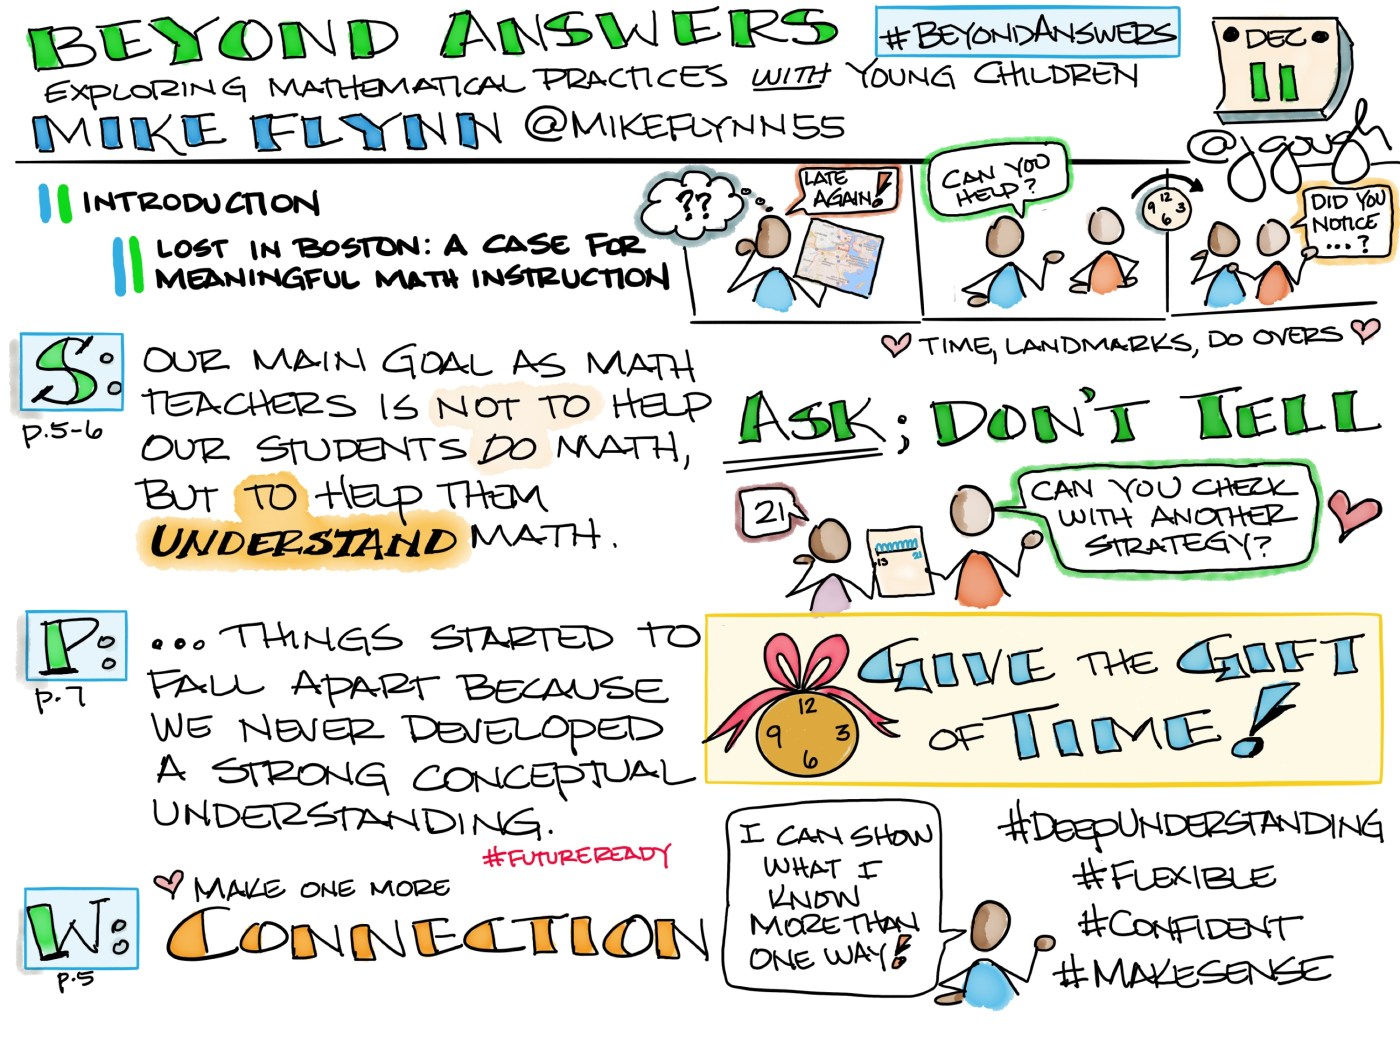 BEYOND ANSWERS
#BEYONDANSWERS
EXPLORING MATHEMATICAL PRACTICES WITH YOUNG CHILDREN
MIKE FLYNN @MIKEFLYNN55
DEC
11
@jgough
INTRODUCTION
LOST IN BOSTON: A CASE FOR
MEANINGFUL MATH INSTRUCTION
??
LATE
AGAIN!
CAN YOU
HELP?
12
9 3
6
DID YOU
NOTICE
...?
TIME, LANDMARKS, DO OVERS
S:
p.5-6
OUR MAIN GOAL AS MATH
TEACHERS IS NOT TO HELP
OUR STUDENTS DO MATH,
BUT TO HELP THEM
UNDERSTAND MATH.
ASK; DON'T TELL
21
13 21
CAN YOU CHECK
WITH ANOTHER
STRATEGY?
P:
p.7
... THINGS STARTED TO
FALL APART BECAUSE
WE NEVER DEVELOPED
A STRONG CONCEPTUAL
UNDERSTANDING.
#FUTUREREADY
12
9 3
6
GIVE THE GIFT
OF TIME!
W:
p.5
MAKE ONE MORE
CONNECTION
I CAN SHOW
WHAT I
KNOW
MORE THAN
ONE WAY!
#DEEPUNDERSTANDING
#FLEXIBLE
#CONFIDENT
#MAKESENSE